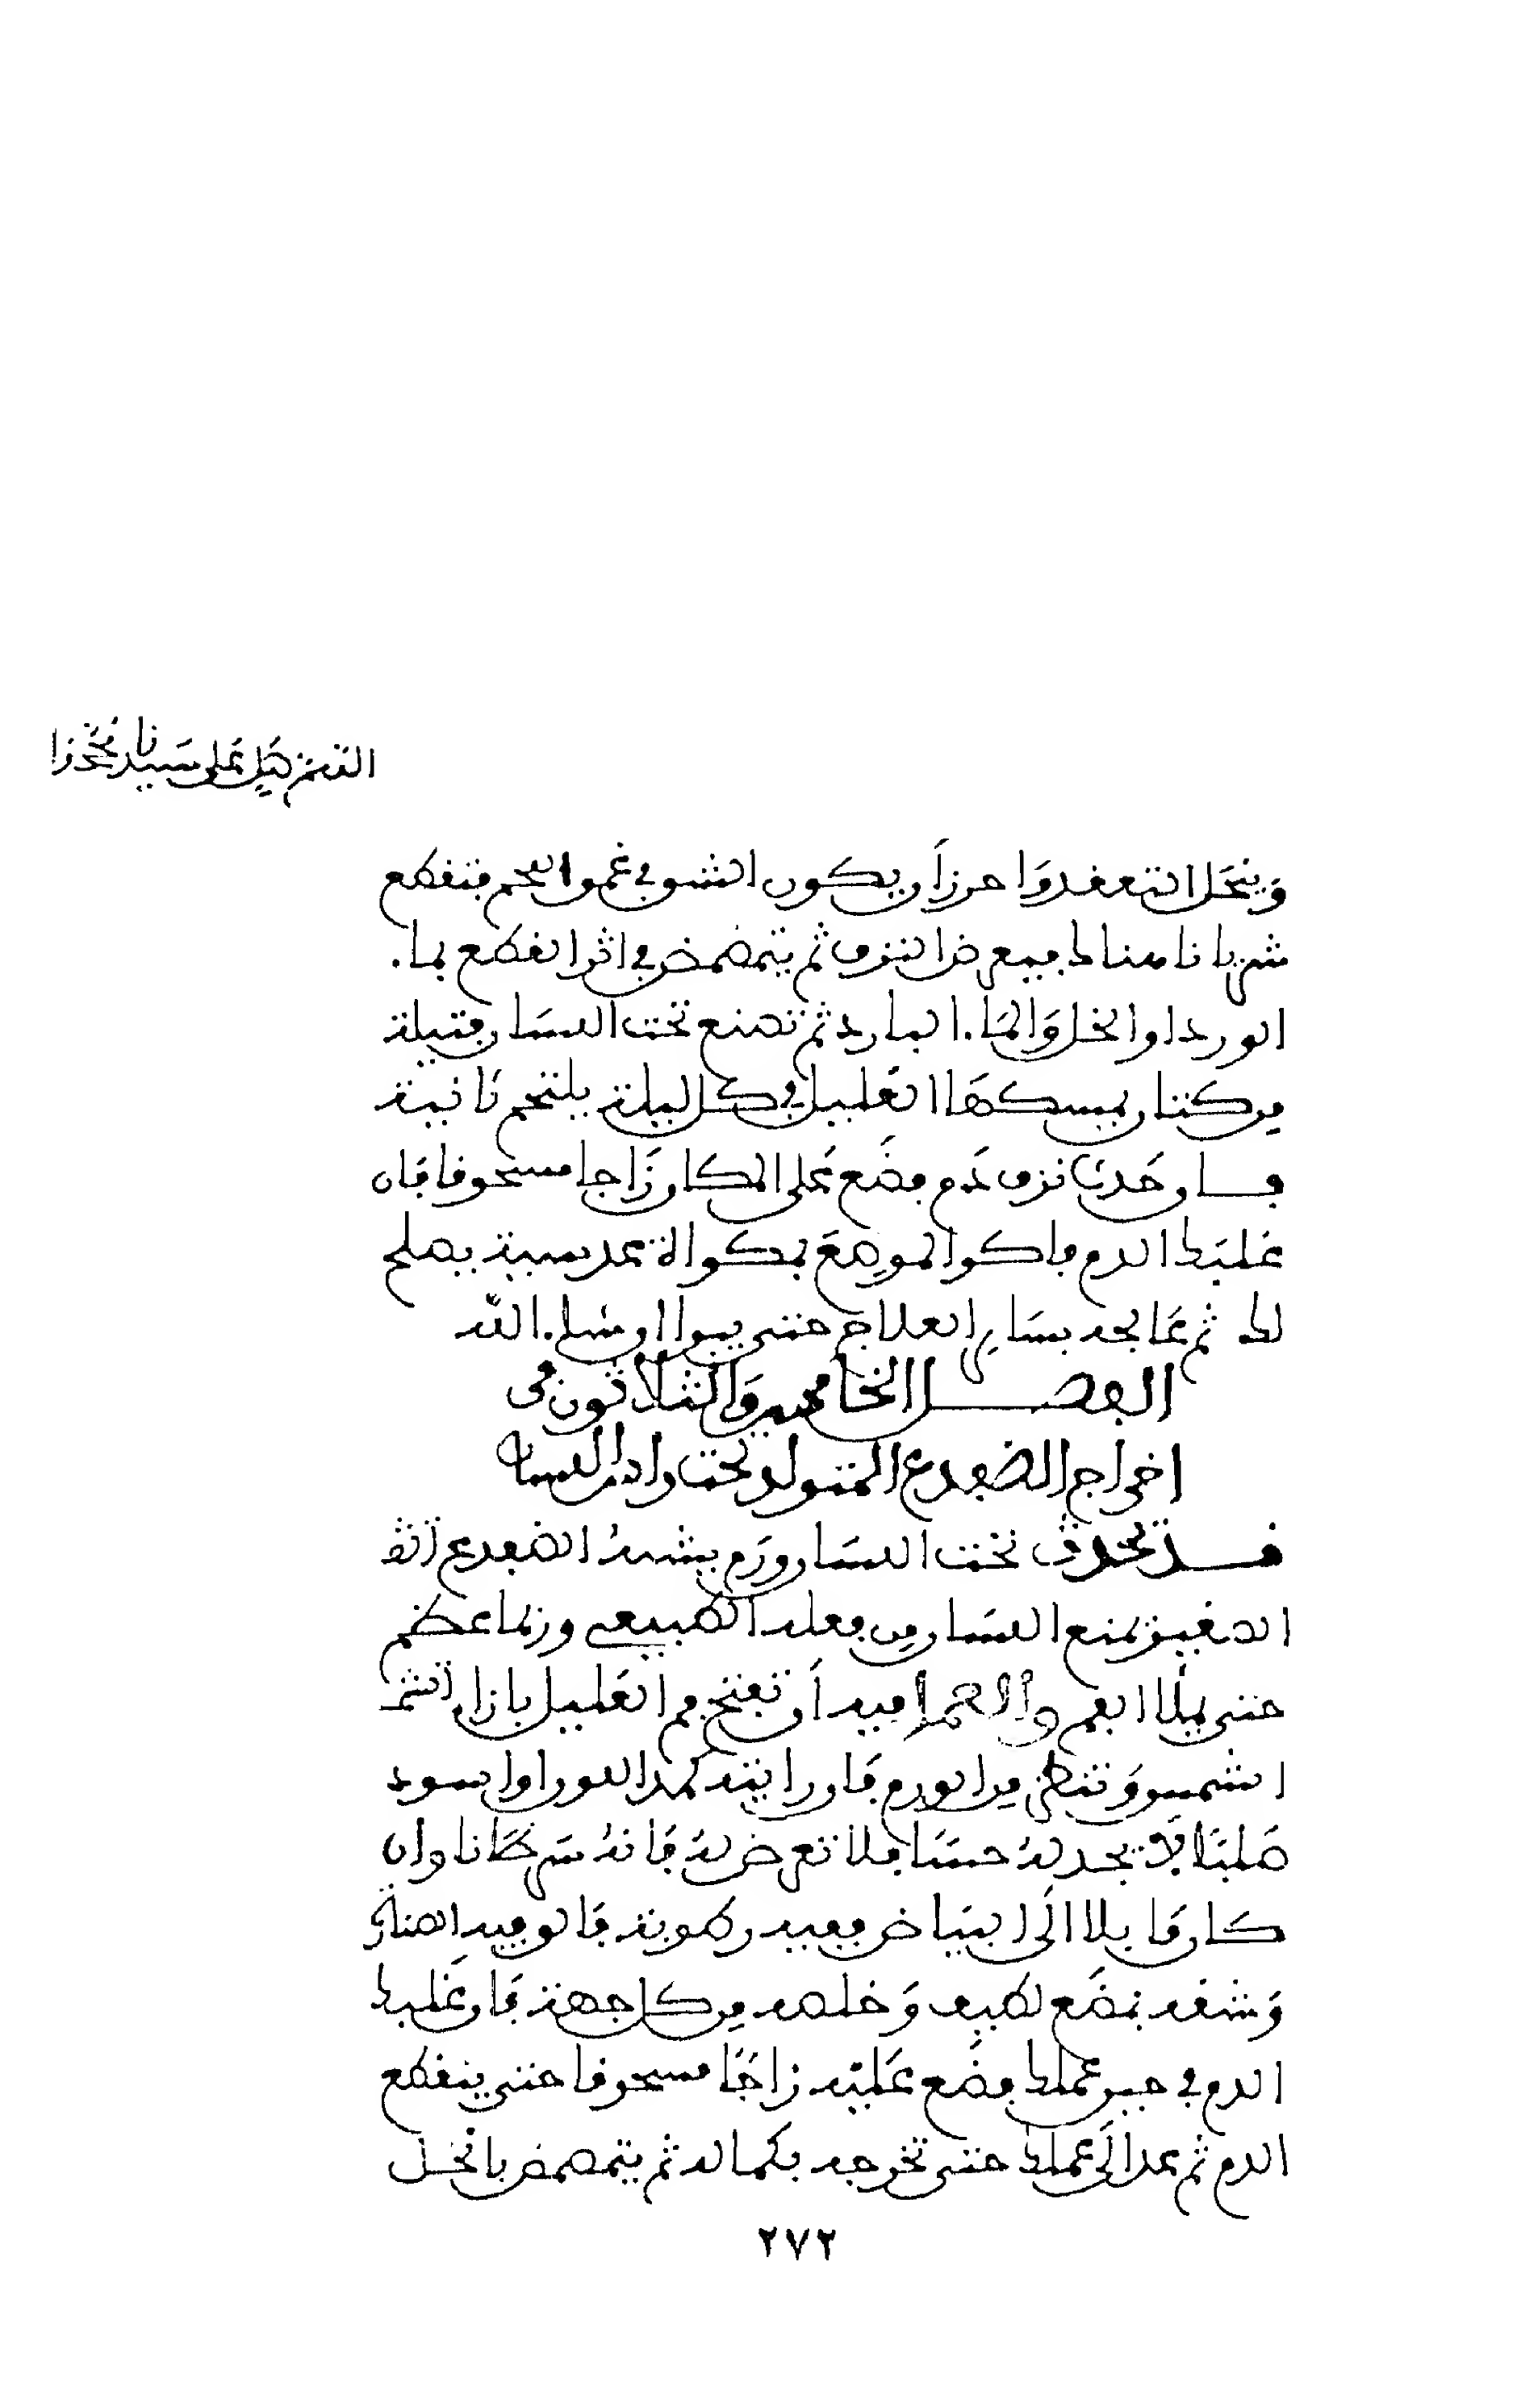 اللهم صل على سيدنا محمد
وينحل التعقد واحذر أن يكون الشق في عمق اللحم فتقطع
شريانا هنالك فيعرض النزف ثم يتمضمض في اثر القطع بماء
الورد او الخل والماء البارد ثم تضع تحت اللسان فتيلة
من كتان يمسكها العليل في كل ليلة يلتحم ثانية
فان حدث نزف دم فضع على المكان زاجا مسحوقا فان
غلبك الدم فاكو الموضع بمكواة عدسية يصلح
لك ثم عالجه بسائر العلاج حتى يبرا ان شاء الله
الفصل الخامس والثلاثون في
اخراج الضفدع المتولد تحت اللسان
قد يحدث تحت اللسان ورم يشبه الضفدع
الصغير يمنع اللسان من فعله الطبيعي وربما عظم
حتى يملا الفم والعمل فيه أن تفتح فم العليل بازاء
الشمس وتنظر من الورم فان رايته كمد اللون او اسود
صلبا لا يجد له حسا فلا تعرض له فانه سرطانا وان
كان مايلا الى البياض فيه رطوبة فالق فيه الصنارة
وشقه بمبضع لطيف وخلصه من كل جهة فان غلبك
الدم في حين عملك فضع عليه زاجا مسحوقا حتى ينقطع
الدم ثم عد الى عملك حتى تخرجه بكماله ثم يتمضمض بالخل
٢٧٢